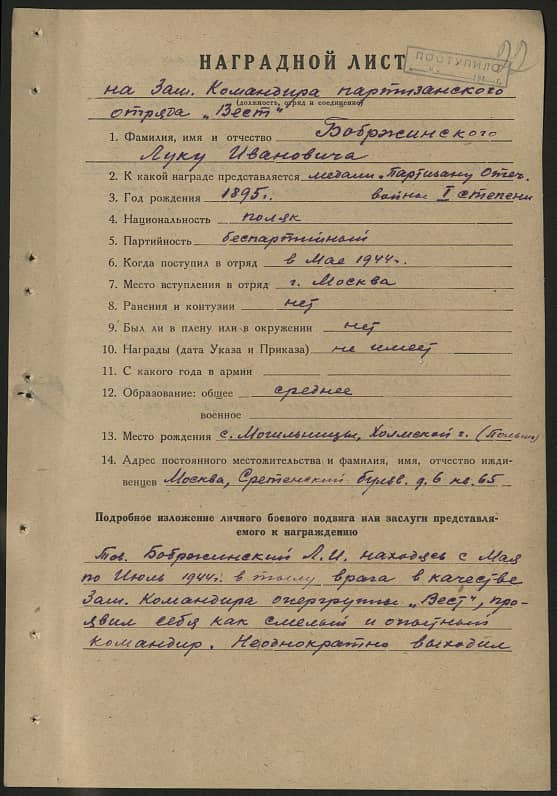 22
ПОСТУПИЛО
НАГРАДНОЙ ЛИСТ
на Зам. Командира партизанского
(должность, отряд и соединение)
отряда „Вест"
1. Фамилия, имя и отчество Бобржинского
Луку Ивановича
2. К какой награде представляется медали „Партизану Отеч.
3. Год рождения 1895г. войны I степени
4. Национальность поляк
5. Партийность беспартийный
6. Когда поступил в отряд в Мае 1944г.
7. Место вступления в отряд г. Москва
8. Ранения и контузии нет
9. Был ли в плену или в окружении нет
10. Награды (дата Указа и Приказа) не имеет
11. С какого года в армии
12. Образование: общее среднее
военное
13. Место рождения с. Могильницы, Холмской г. (Польша)
14. Адрес постоянного местожительства и фамилия, имя, отчество ижди-
венцев Москва, Сретенский бульв. д. 6 кв. 65
Подробное изложение личного боевого подвига или заслуги представля-
емого к награждению
Тов. Бобржинский Л.И. находясь с Мая
по Июль 1944г. в тылу врага в качестве
Зам. Командира опергруппы „Вест", про-
явил себя как смелый и опытный
командир. Неоднократно выходил